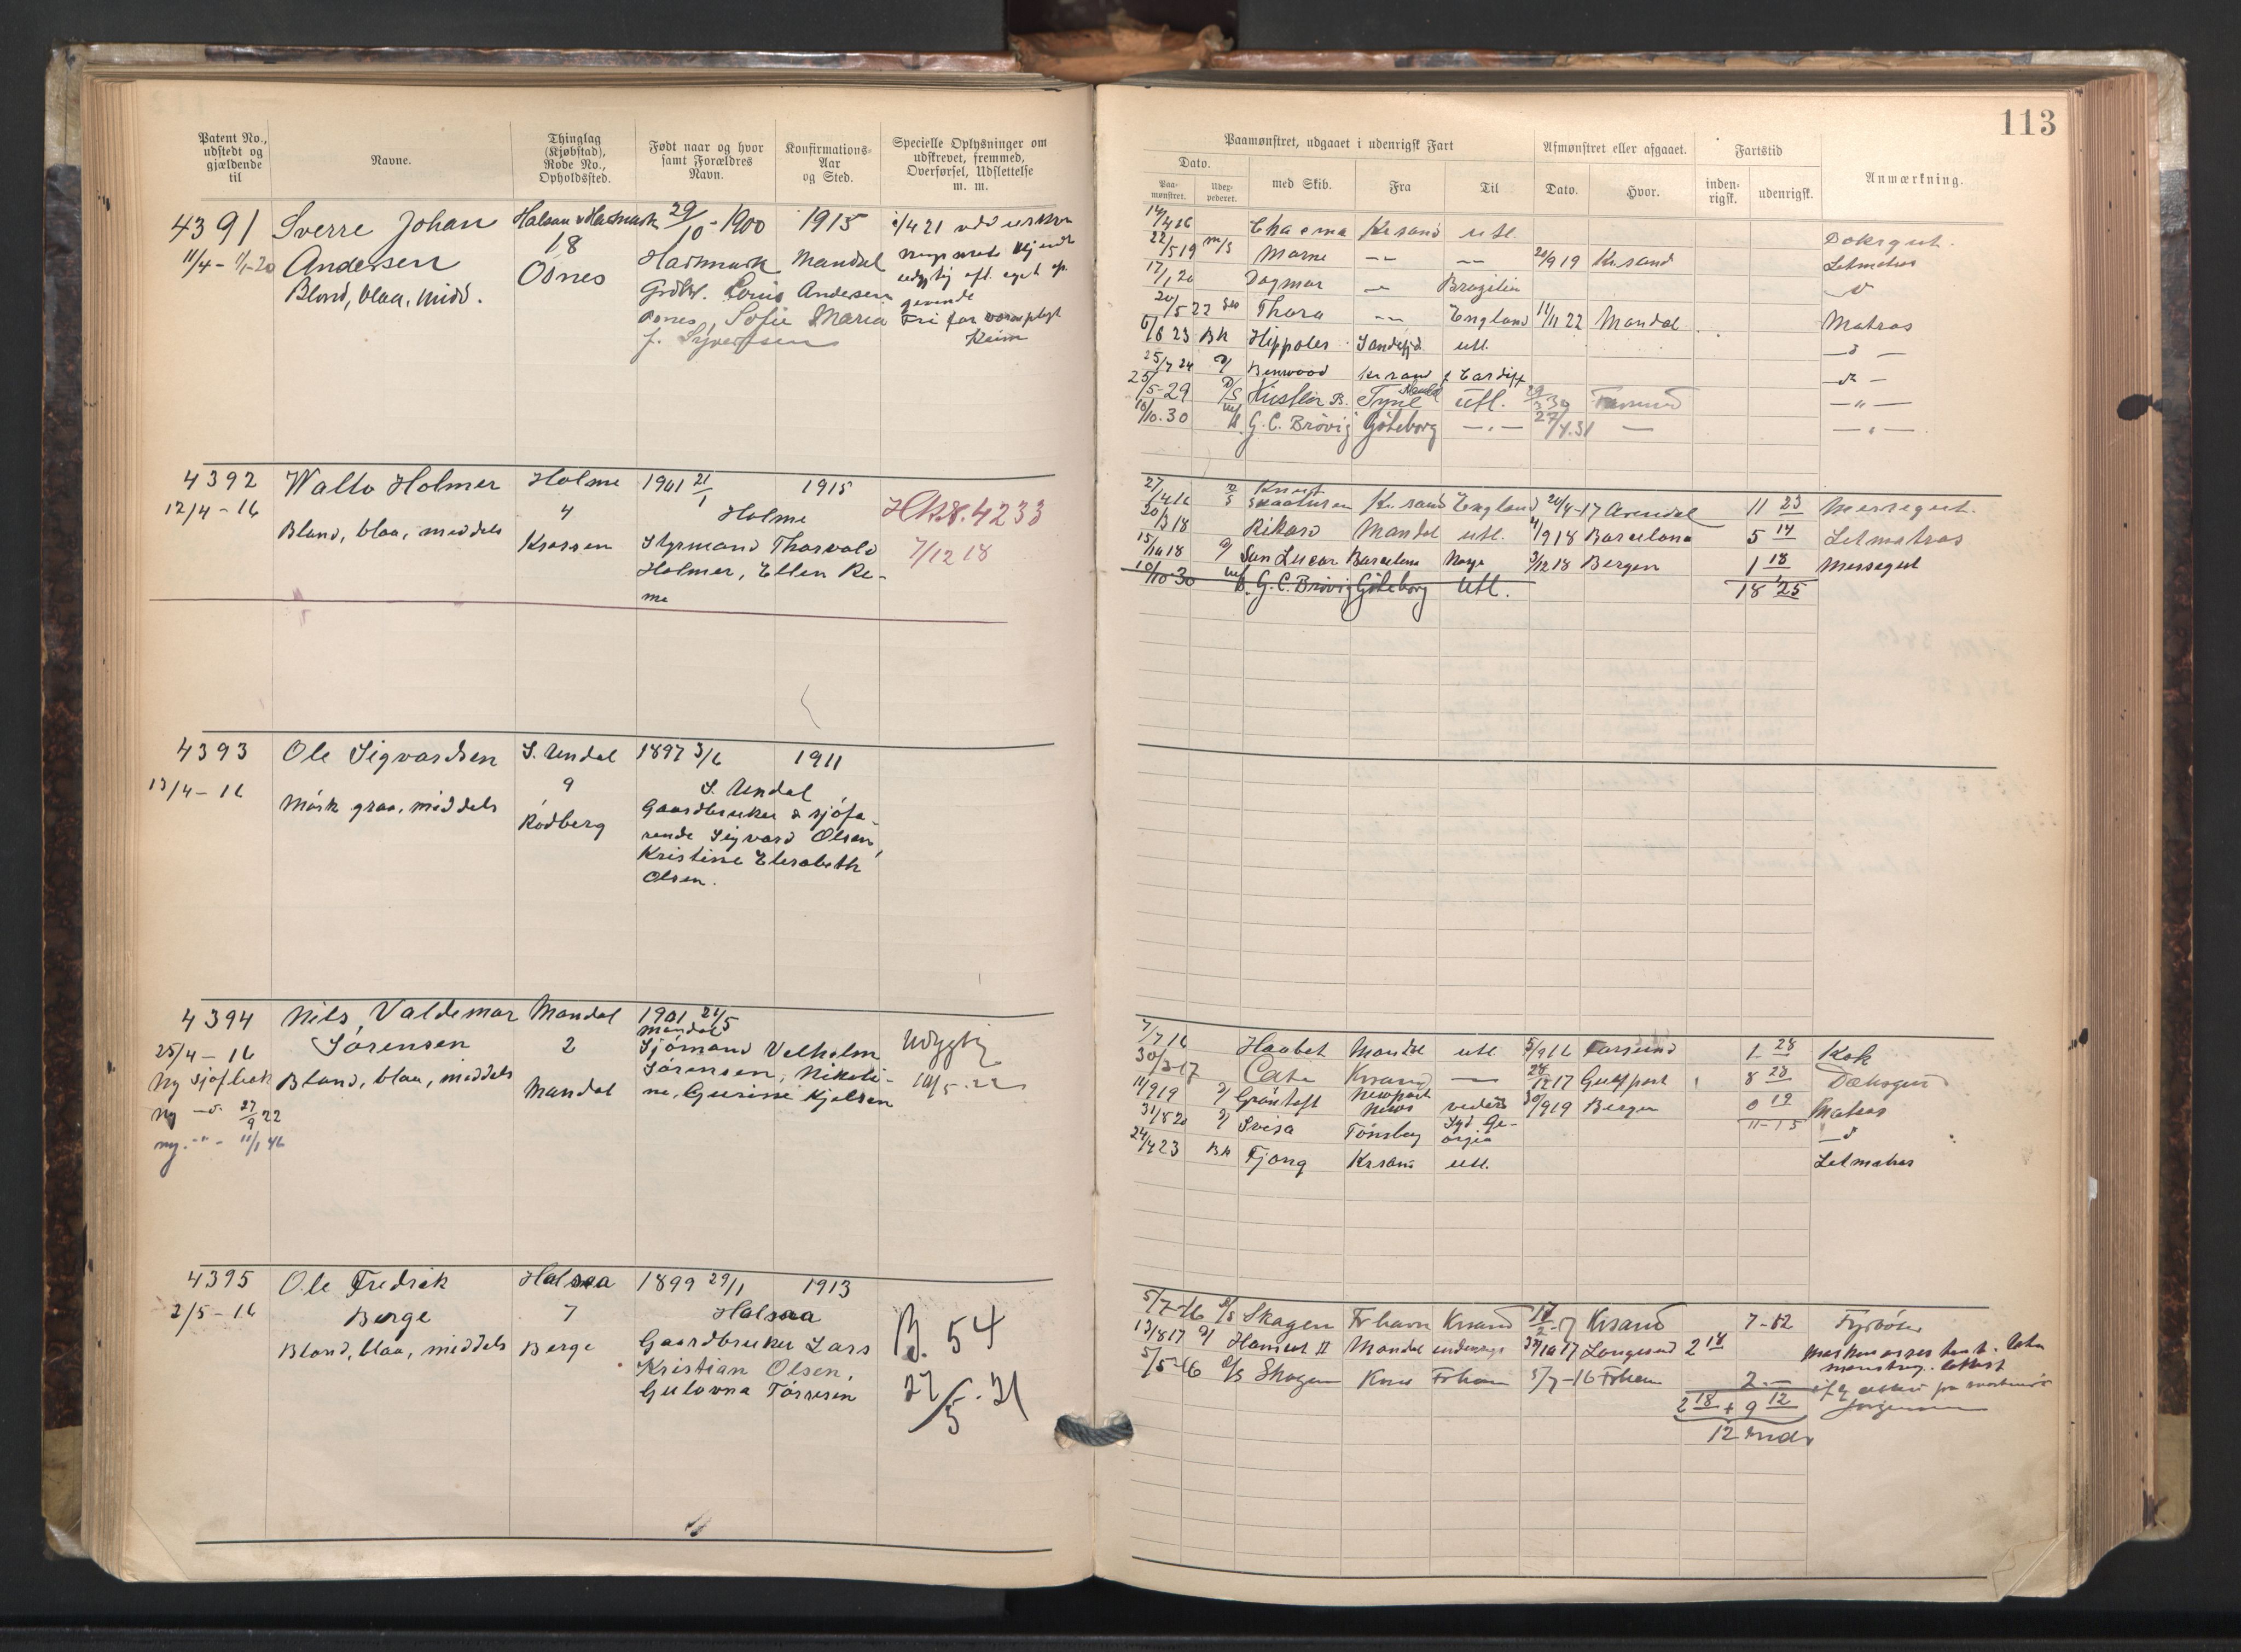 113
Patent No., udstedt og gjældende til
Navne.
Thinglag (Kjøbstad), Rode No., Opholdssted.
Født naar og hvor samt Forældres Navn.
Konfirmations-Aar og Sted.
Specielle Oplysninger om udskrevet, fremmed, Overførsel, Udslettelse m. m.
Paamønstret, udgaaet i udenrigsk Fart
Afmønstret eller afgaaet.
Fartstid
Anmærkning.
Dato.
Paa-mønstret.
Uder-pederet.
med Skib.
Fra
Til
Dato.
Hvor.
inden-rigsk.
udenrigsk.
4391 Sverre Johan 29/10-1900 1915
11/4 - 1/1-20 Andersen 18 Mandal
Blond, blaa, midd. Osnes
Louis Andersen
Sofie Maria
f. Syvertsen
14/4 16 Krsand utl.
22/5 19 m/s Marne 20/9 19 Krsand Letmatros
17/1 20 Dagmar Brazilien
20/5 22 Thora England 11/11 22 Mandal Matros
6/8 23 Bk Hippoles utl.
25/7 24 Benwood Krsand Cardiff
25/5-29 D/S Tyne utl.
10/10.30 G. C. Brövig Göteborg 27/4.31
4392 Walto Holmer Holme 1901 21/1 1915
12/4 - 16 4 Holme
Blond, blaa, middels Krossen Styrmand Thorvald
Holmer, Ellen Re-
me
4233
7/12 18
27/4 16 Knut Skaaluren Krsand England 20/4-17 Arendal 11 23 Messegut.
20/3 18 Rikard Mandal utl. 4/9 18 Barcelona 5 14 Letmatros
15/10 18 San Lucar Barcelona Norge 3/12 18 Bergen 1 18 Messegut
10/10 30 G. C. Brövig Göteborg utl. 18 25
4393 Ole Sigvardsen S. Undal 1897 3/6 1911
13/4 - 16 9 S. Undal
Mörk graa, middels Rödberg Gaardbruker & sjöfa-
rende Sigvard Olsen,
Kristine Elisabeth
Olsen.
4394 Nils Valdemar Mandal 1901 24/5
25/4 - 16 Sörensen 2 Mandal
Ny sjöf.bok Blond, blaa, middels Mandal Sjömand Velholm
Sörensen, Nikoli-
ne, Gurine Kjelsen
ny 27/9 22
ny. - " - 11/1 46
Udygtig
10/5 - 22
7/7 16 Haabet Mandal utl 5/9 16 Farsund 1 28 Kok
30/3-17 Cate Krsand 28/12 17 Gulfport 8 28 Dæksgut
11/9 19 Gröntoft Newport News 30/9 19 Bergen 0 19 Matros
31/8 20 Svesa Tönsberg Syd Ge-orgia 11-15
24/4 23 Bk Fjong Krsand utl. Letmatros
4395 Ole Fredrik Halsaa 1899 29/1 1913
2/5 - 16 Berge 7 Halsaa
Blond, blaa, middels Berge Gaardbruker Lars
Kristian Olsen,
Gulovna Törresen
B. 54
27/5 - 21
5/7-16 D/S Skagen Frhavn Krsand 17/2-17 Krsand 7-12 Fyrböter
13/8 17 Mandal Langesund 2 18
5/5-16 D/S Skagen Frhavn 5/7-16 Frhavn 2 -
2 18 + 9 12
12 mdr